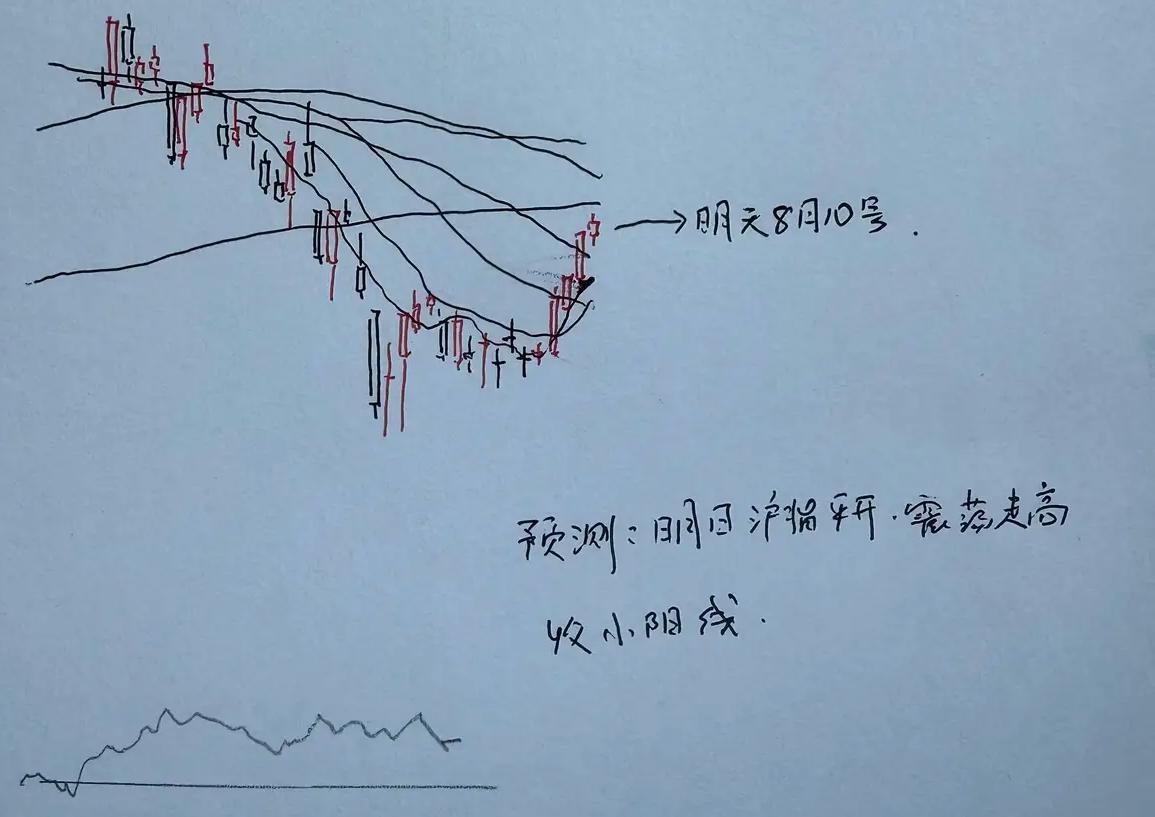 明天8月10号.
预测:明日沪指平开.震荡走高
收小阳线.